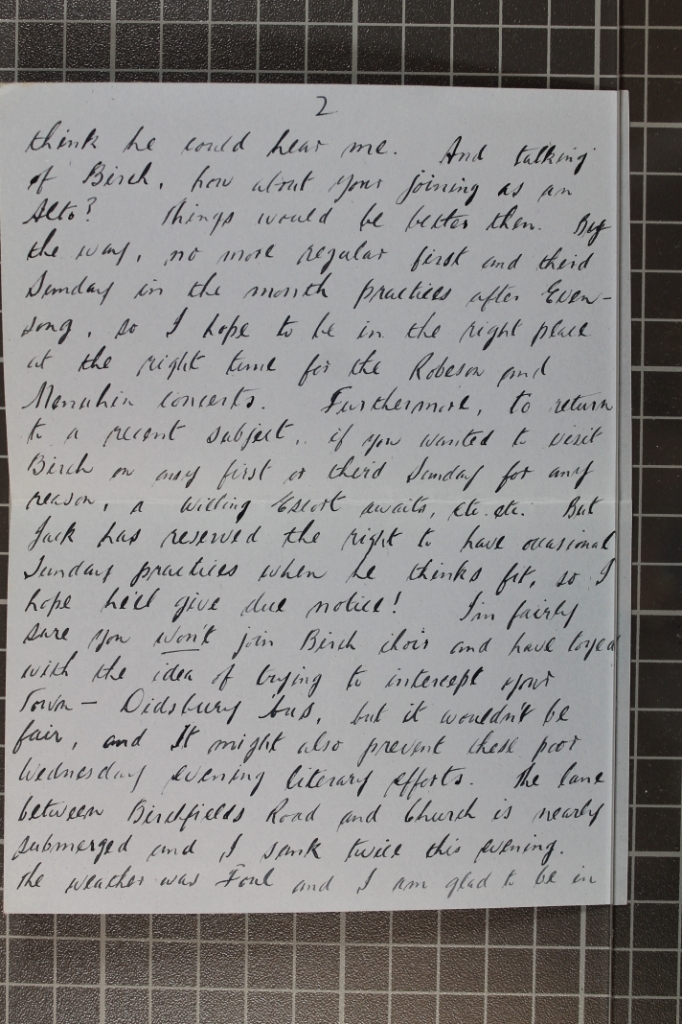 2
think he could hear me. And talking
of Birch, how about your joining as an
Alto? Things would be better then. By
the way, no more regular first and third
Sunday in the month practices after Even-
song, so I hope to be in the right place
at the right time for the Robeson and
Menuhin concerts. Furthermore, to return
to a recent subject, if you wanted to visit
Birch on any first or third Sunday for any
reason, a Willing Escort awaits, etc. etc. But
Jack has reserved the right to have occasional
Sunday practices when he thinks fit, so I
hope he'll give due notice! I'm fairly
sure you won't join Birch choir and have toyed
with the idea of trying to intercept your
Town - Didsbury 'bus, but it wouldn't be
fair, and It might also prevent these poor
Wednesday evening literary efforts. The lane
between Birchfields Road and Church is nearly
submerged and I sank twice this evening.
The weather was Foul and I am glad to be in